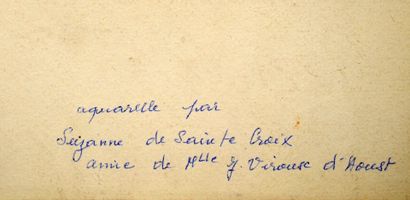 aquarelle par
Suzanne de Sainte Croix
amie de Mlle J. Virouse d'Aoust